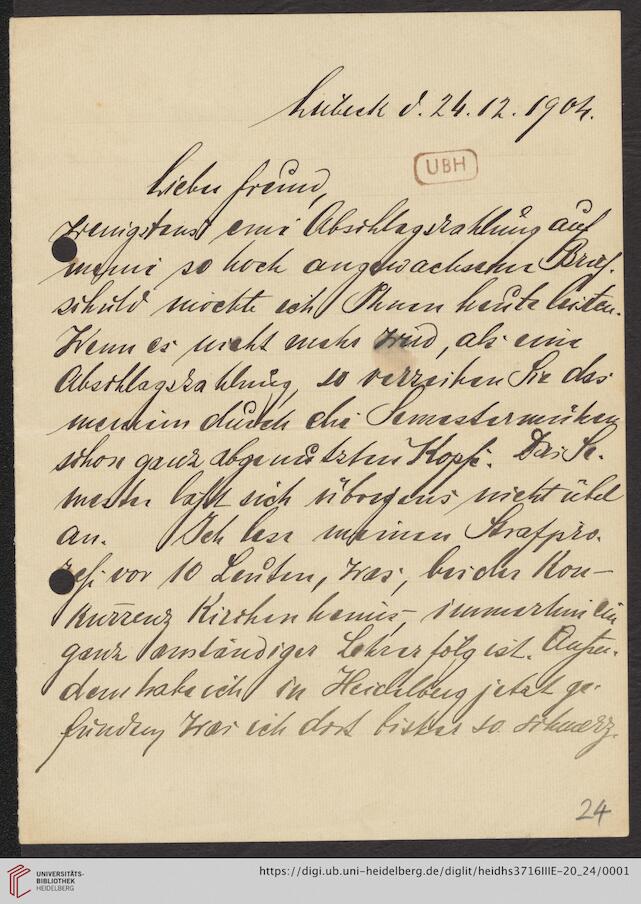 Lübeck d. 24.12.1904.
UBH
Lieber Freund,
wenigstens eine Abschlagszahlung auf
meine so hoch angewachsene Brief-
schuld möchte ich Ihnen heute leisten.
Wenn es nicht mehr wird, als eine
Abschlagszahlung, so verzeihen Sie das
meinem durch die Semestermühen
schon ganz abgenutzten Kopfe. Das Se-
mester läßt sich übrigens nicht übel
an. Ich lese meinen Strafpro-
zeß vor 10 Leuten, was, bei der Kon-
kurrenz Kirchenheims, immerhin ein
ganz anständiger Lehrerfolg ist. Außer-
dem habe ich in Heidelberg jetzt ge-
funden, was ich dort bisher so schmerz-
24
UNIVERSITÄTS-
BIBLIOTHEK
HEIDELBERG
https://digi.ub.uni-heidelberg.de/diglit/heidhs3716IIIE-20_24/0001